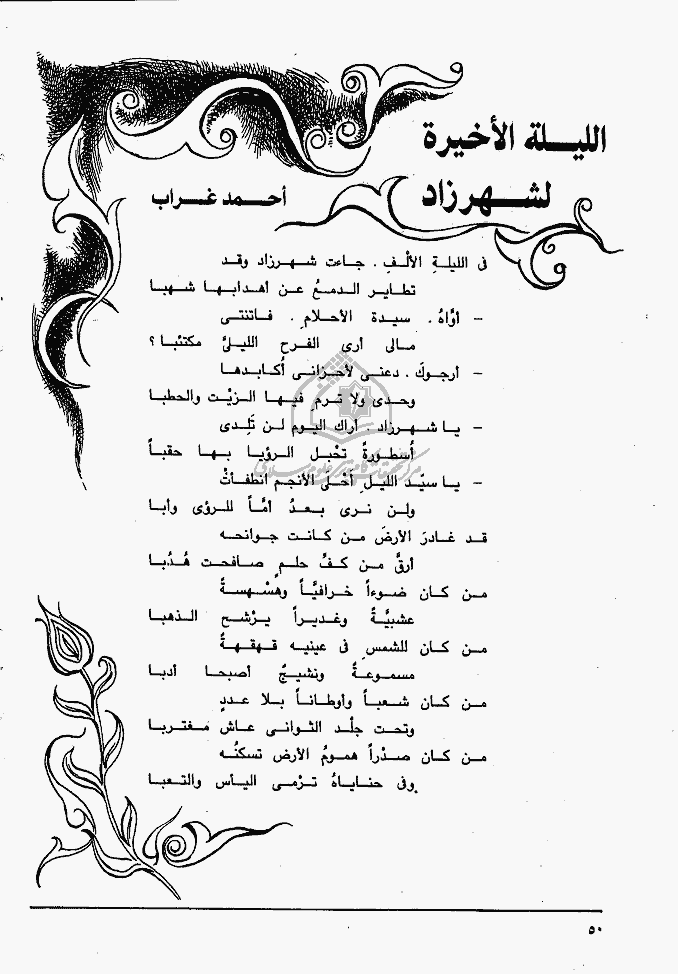 الليلة الأخيرة
لشهرزاد
أحمد غراب
فى الليلةِ الألْفِ . جاءت شهرزاد وقد
تطاير الدمعُ عن أهدابها شهبا
- أوَّاهُ . سيدة الأحلامِ . فاتنتى
مالى أرى الفرح الليلىَّ مكتئبا ؟
- أرجوكَ . دعنى لأحزانى أُكابدها
وحدى ولا ترمِ فيها الزيْت والحطبا
- يا شهرزاد . أراك اليوم لن تَلِدى
أُسطورةً تحْبل الرؤيا بها حقباً
- يا سيّد الليلِ أحْلَى الأنجم انطفأتْ
ولن نرى بعدُ أمَّاً للرؤى وأبا
قد غادرَ الأرضَ من كانت جوانحه
أرقَّ من كفِّ حلمٍ صافحت هُدُبا
من كان ضوءاً خرافيَّاً وهسْهسةً
عشبيَّةً وغديراً يرْشح الذهبا
من كان للشمسِ فى عينيه قهقهةٌ
مسموعةٌ ونشيجٌ أصبحا أدبا
من كان شعباً وأوطاناً بلا عددٍ
وتحت جلْد الثوانى عاش مغتربا
من كان صدْراً همومُ الأرض تسكنُه
وفى حناياهُ ترْمى اليأس والتعبا
٥٠